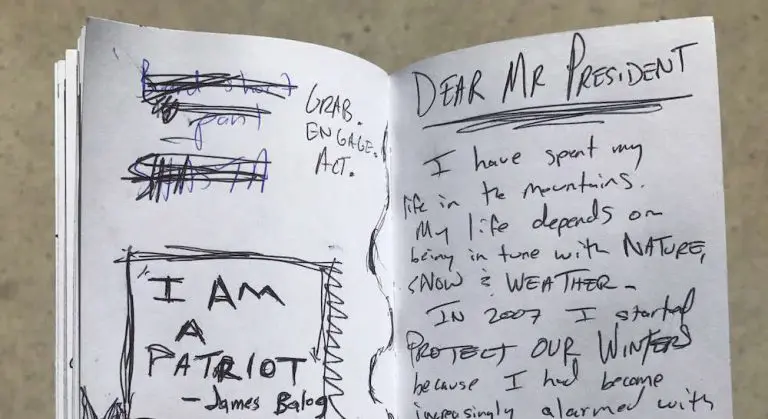 pant
GRAB.
ENGAGE.
ACT.
I AM
A
PATRIOT
- James Balog
DEAR MR PRESIDENT
I have spent my
life in the mountains.
My life depends on
being in tune with NATURE,
SNOW & WEATHER -
IN 2007 I started
PROTECT OUR WINTERS
because I had become
increasingly alarmed with